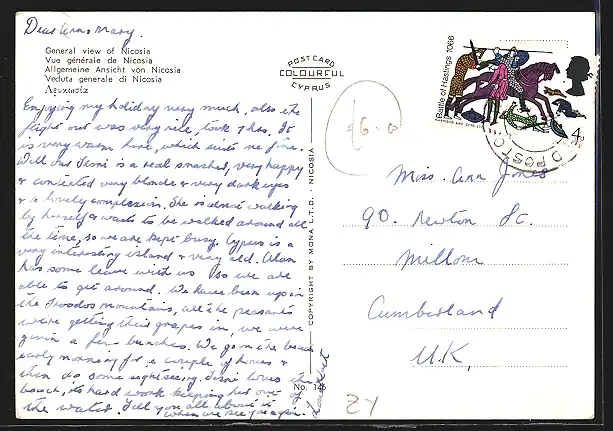 Dear Ann, Mary.
General view of Nicosia
Vue générale de Nicosia
Allgemeine Ansicht von Nicosia
Veduta generale di Nicosia
Λευκωσία
Enjoying my holiday very much, also the
flight out was very nice, took 4 hrs. It
is very warm here, which suits me fine.
Well is a real smasher, very happy
& contented very blonde & very dark eyes
& a lovely complexion. She is almost walking
by herself & wants to be walked around all
the time, so we are kept busy. Cyprus is a
very interesting island & very old. Alan
has some leave with us so we are
able to get around. We have been up in
the Troodos mountains, all the peasants
were getting their grapes in, we were
given a few bunches. We go on the beach
early morning for a couple of hours &
then do some sightseeing. loves the
beach, its hard work keeping her out of
the water. Tell you all about it
when we see you again.
POSTCARD
COLOURFUL
CYPRUS
COPYRIGHT BY MONA L.T.D. L. NICOSIA
No. 146
£6.0
Battle of Hastings 1066
HARRISON AND SONS LTD
4d
D POSTO
Miss. Ann Jones
90. Newton St.
Millom
Cumberland
U.K.
ZY